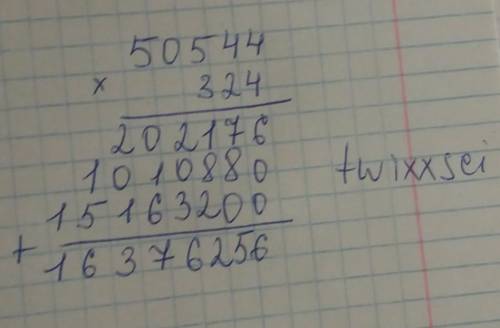 50544
× 324
202176
1010880
15163200
+
16376256
twixxsei